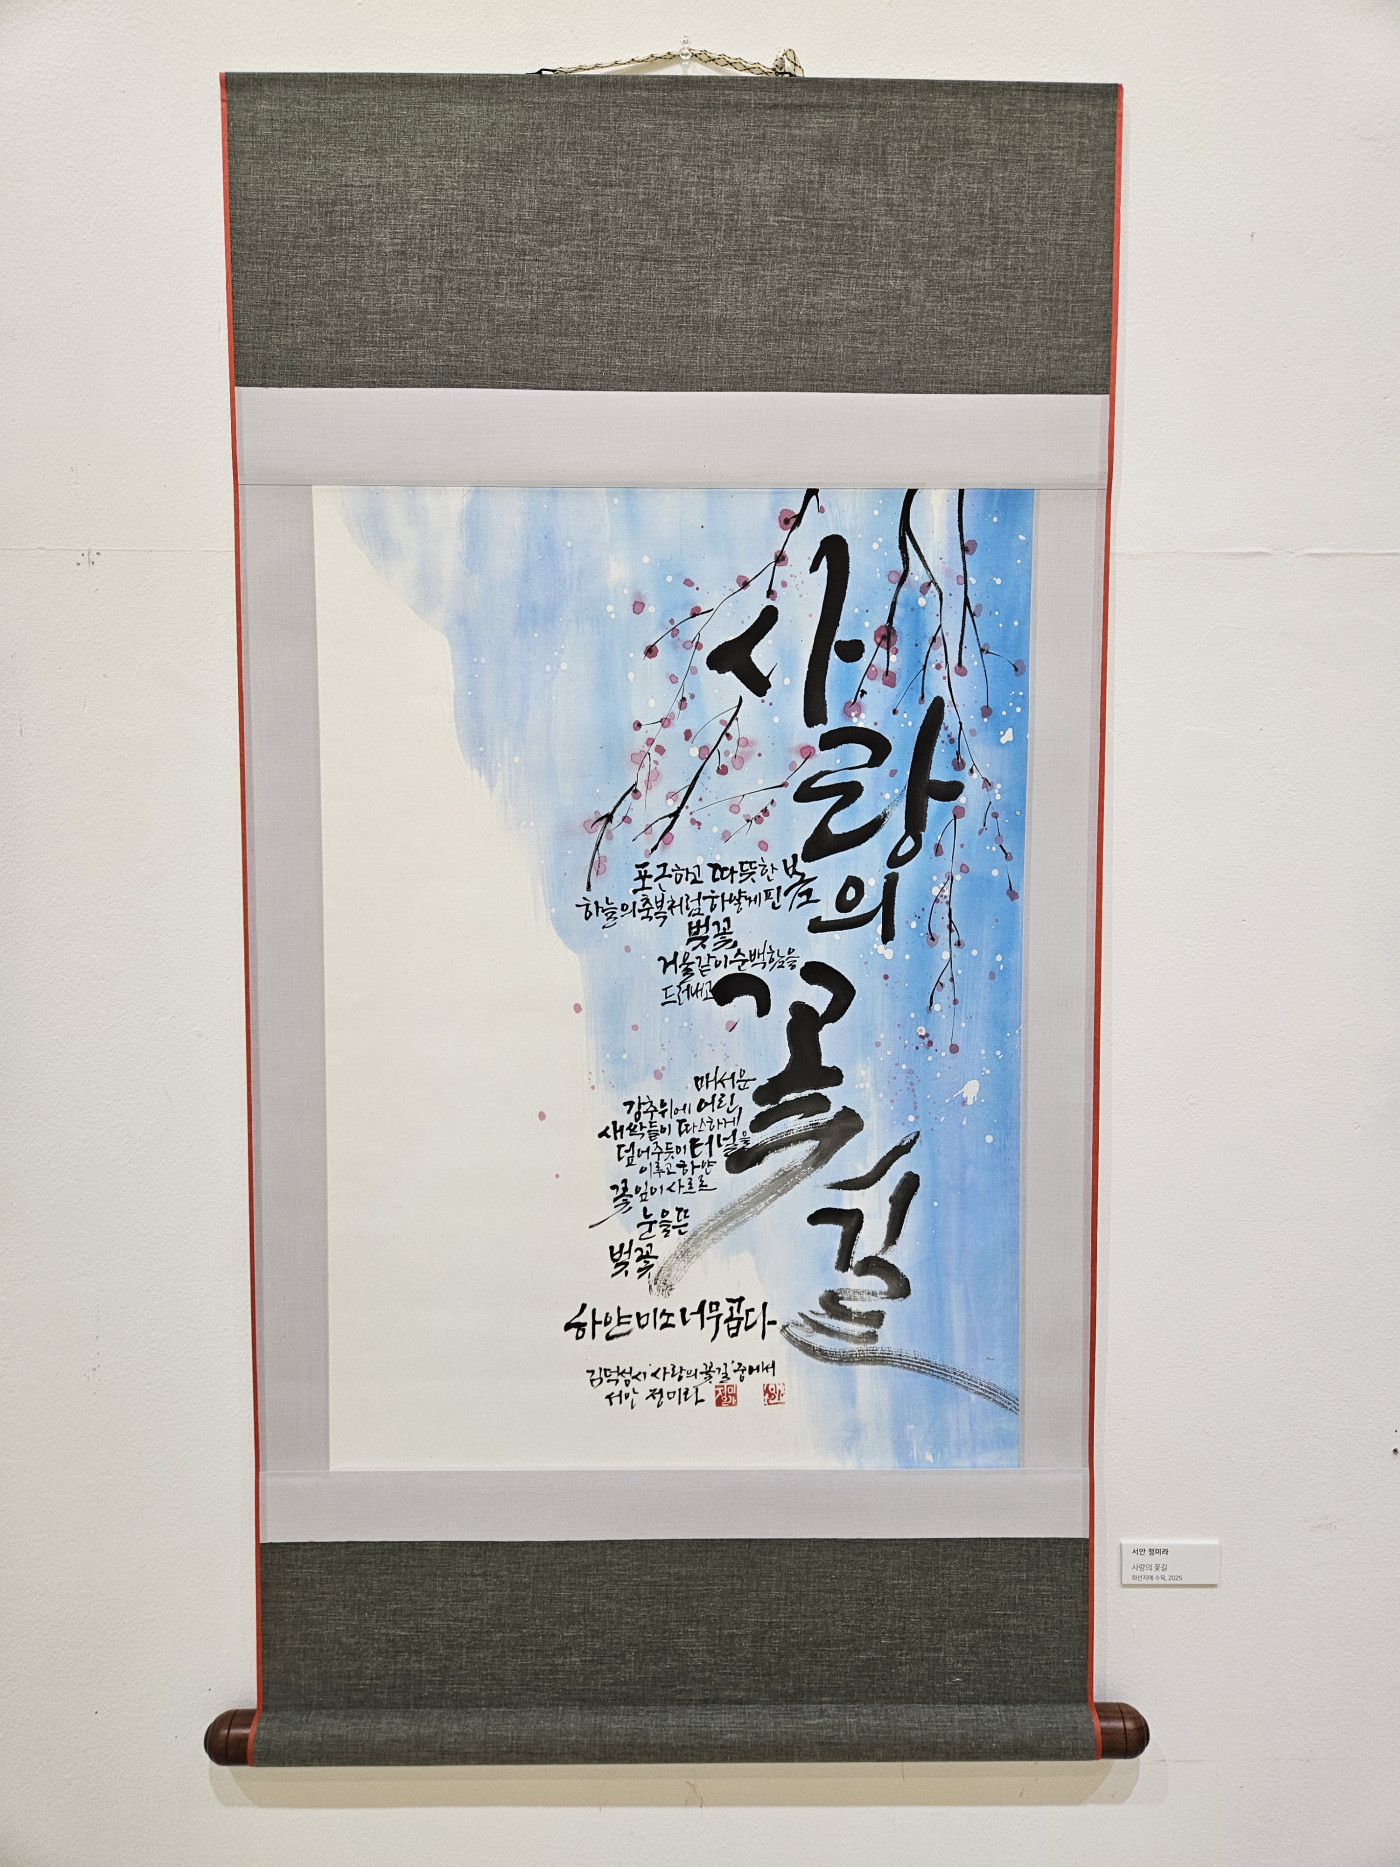 사랑의 꽃길
포근하고 따뜻한 봄
하늘의 축복처럼 하얗게 핀
벚꽃
거울같이 순백함을
드러내고
매서운
강추위에 어린
새싹들이 따스하게
덮어주듯이 터널을
이루고 하얀
꽃잎이 사르르
눈을 뜬
벚꽃
하얀 미소 너무 곱다
김덕성 시 '사랑의 꽃길' 중에서
서안 정미라
서안 정미라
사랑의 꽃길
화선지에 수묵, 2025